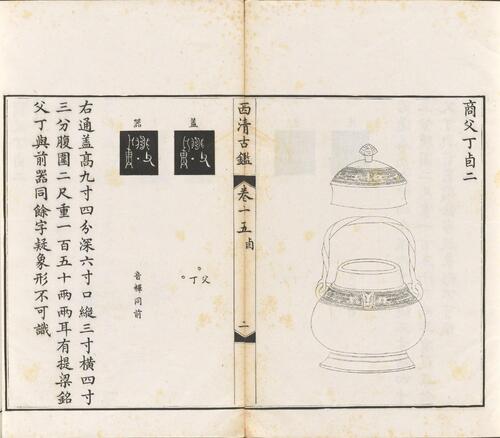 商父丁卣二
西清古鑑
卷十五 卣
二
蓋
父
丁
器
音釋同前
右通蓋高九寸四分深六寸口縱三寸橫四寸
三分腹圍二尺重一百五十兩兩耳有提梁銘
父丁與前器同餘字疑象形不可識